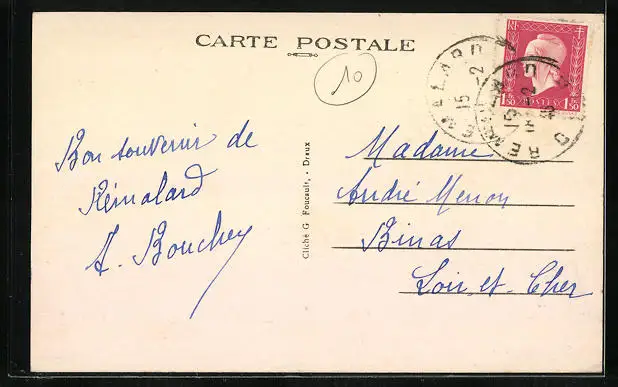 CARTE POSTALE
10
RF
1F50 POSTES 1F50
REMALARD
15
-2
Bon souvenir de
Rémalard
A. Bouchey
Cliché G. Foucault, - Dreux
Madame
André Menon
Binas
Loir-et-Cher